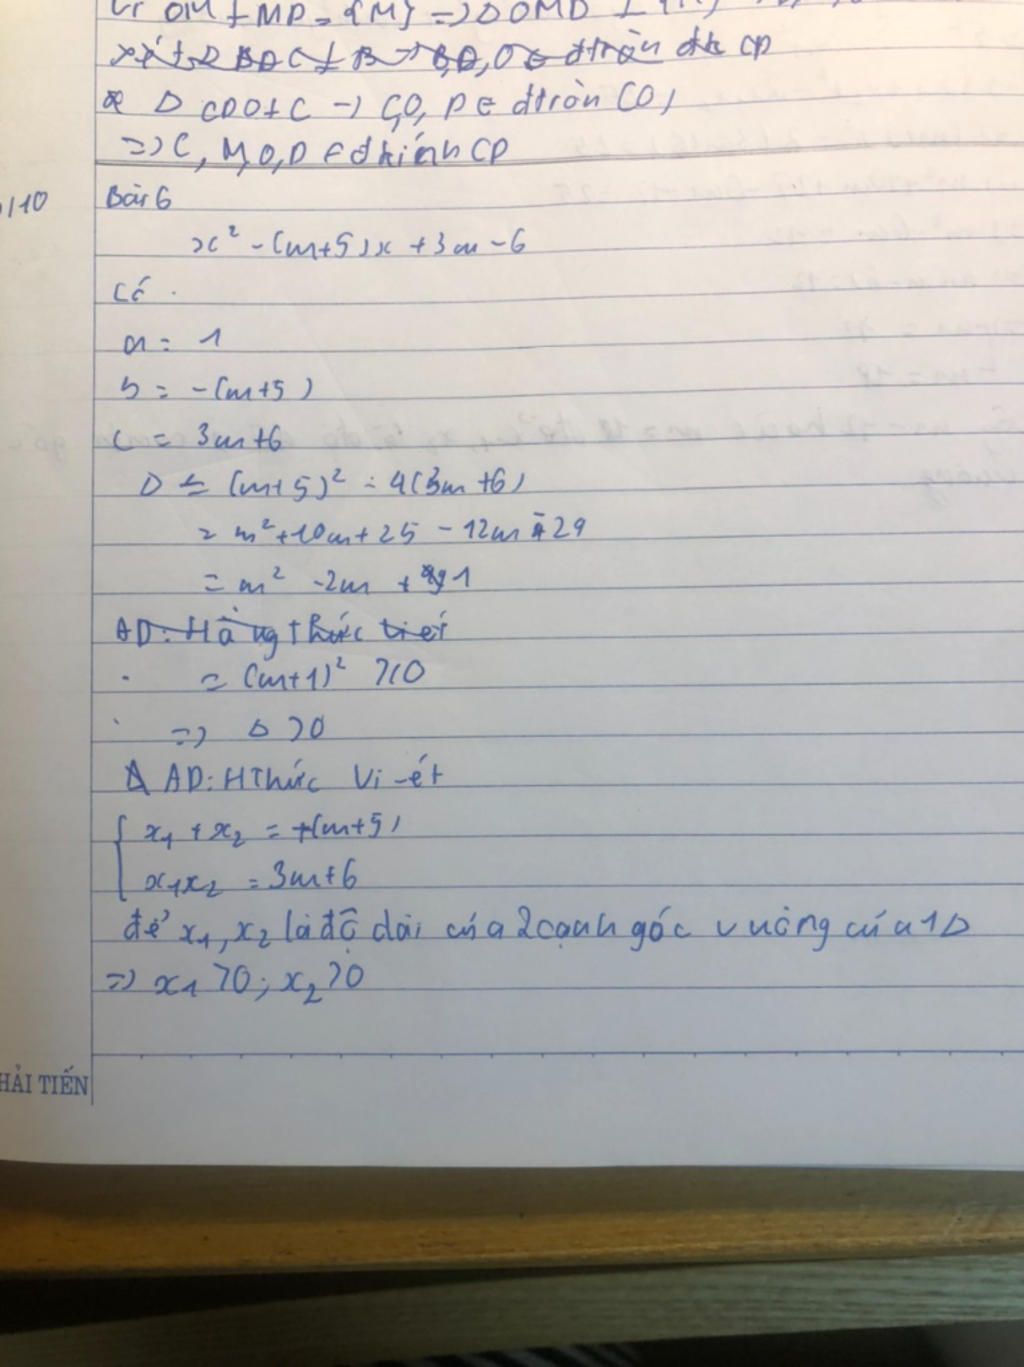 OM ⊥ MD = {M} => Δ OMD ⊥
đtròn đk CD
Δ CDO ⊥ C -> C,O, D ∈ đtròn CO,
=> C, M, O, D ∈ đkính CD
/10 Bài 6
x² - (m+5)x + 3m - 6
Có
a = 1
b = -(m+5)
c = 3m+6
Δ = (m+5)² - 4(3m+6)
= m² + 10m + 25 - 12m - 24
= m² - 2m + 1
AD: Hằng thức
= (m+1)² ≥ 0
=> Δ > 0
AD: HThức Vi-ét
x₁ + x₂ = +(m+5)
x₁x₂ = 3m+6
để x₁, x₂ là độ dài của 2 cạnh góc vuông của 1 Δ
=> x₁ > 0; x₂ > 0
HẢI TIẾN